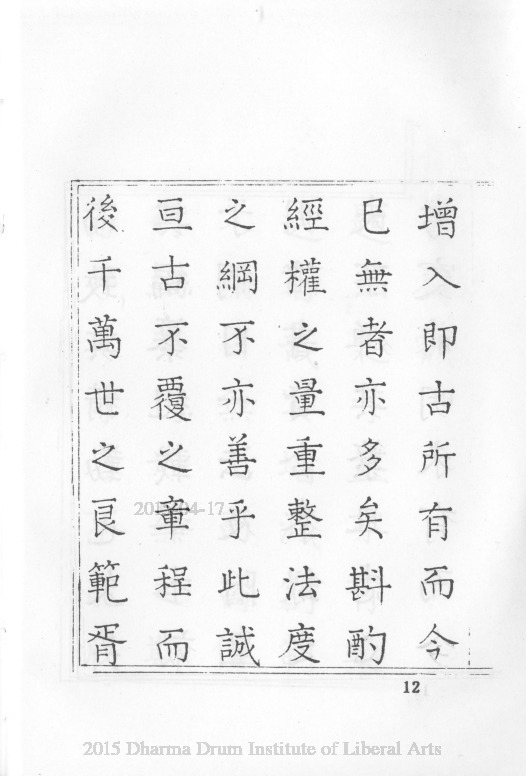 增入即古所有而今
已無者亦多矣斟酌
經權之量重整法度
之綱不亦善乎此誠
亘古不覆之章程而
後千萬世之良範胥
12
2015 Dharma Drum Institute of Liberal Arts